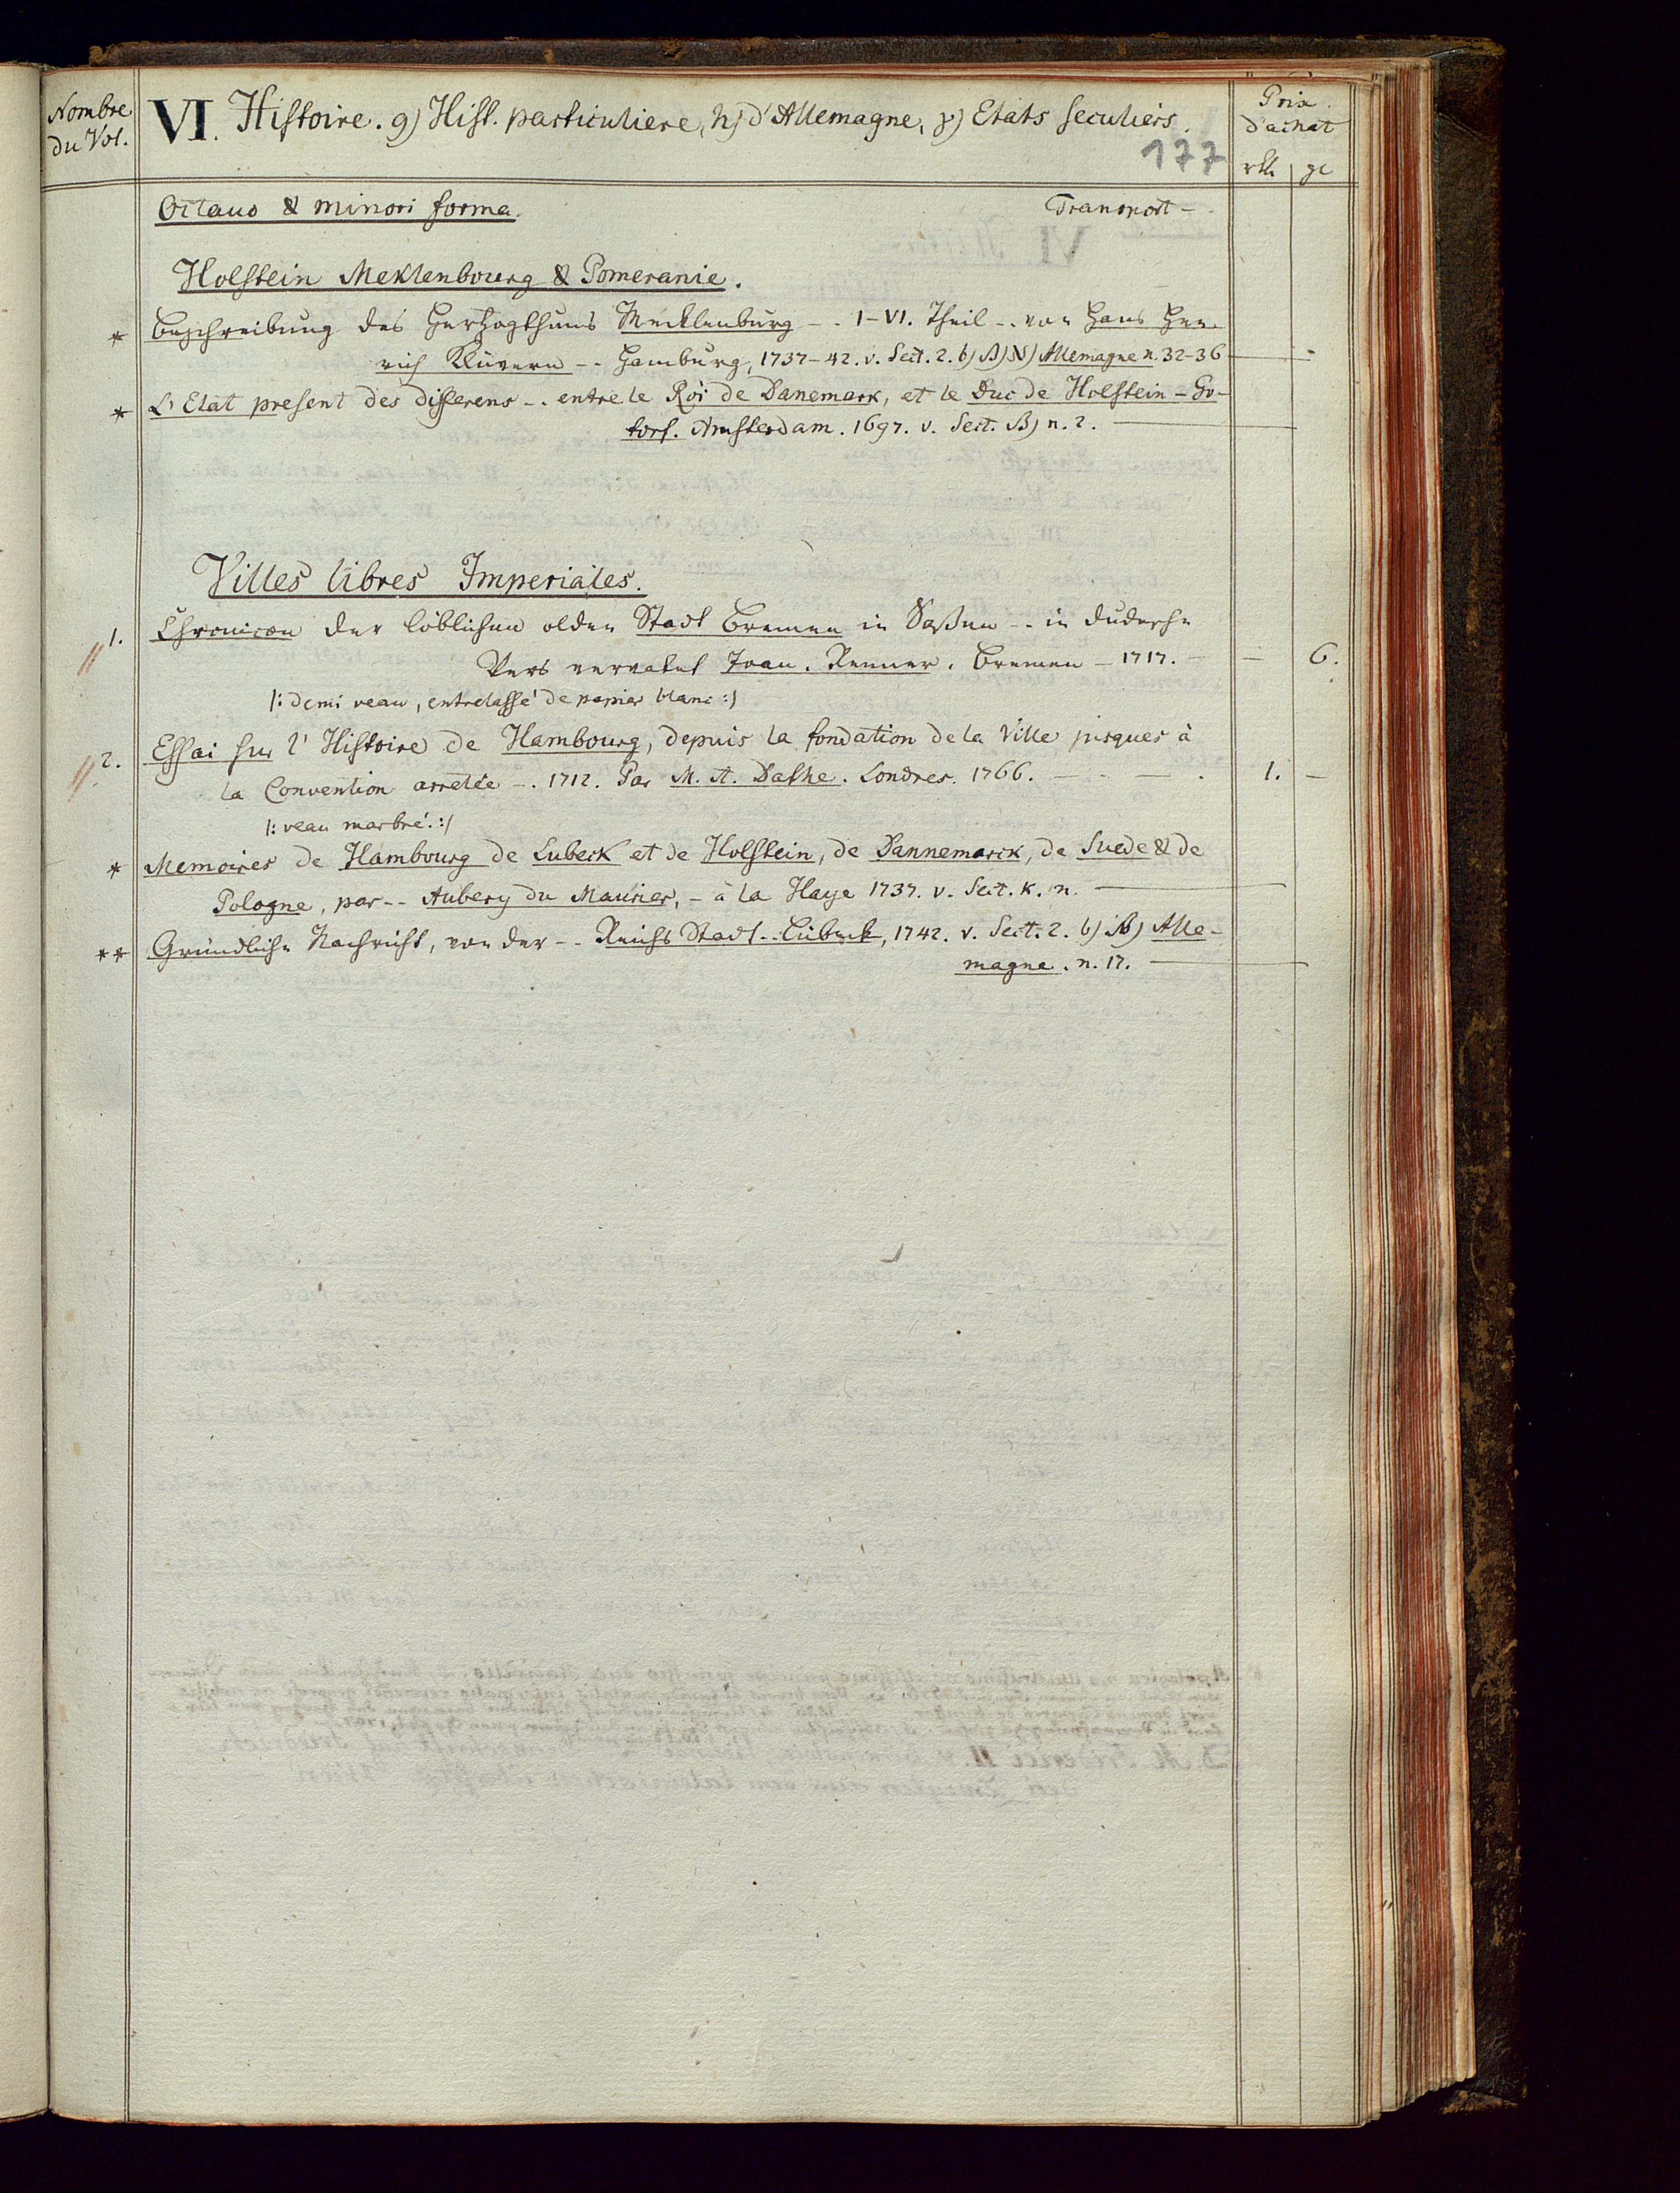 Nombre du Vol.
VI. Histoire. g) Hist. particuliere, h) d'Allemagne, γ) Etats seculiers.
Prix d'achat
177
rtl. gr
Octavo & minori forma.
Transport -
Holstein Meklenbourg & Pomeranie.
* Beschreibung des Herzogthums Mecklenburg - . I-VI. Theil - . von Hans Hen-
rich Klüvern - - Hamburg, 1737-42. v. Sect. 2. b) β) Allemagne n. 32-36
* L'Etat present des differens - . entre le Roi de Danemark, et le Duc de Holstein-Go-
torf. Amsterdam. 1697. v. Sect. β) n. 2.
Villes libres Imperiales.
1. Chronicon der löblichen olden Stadt Bremen in Saßen - - in dudesche
Vers vervatet Joan. Renner. Bremen - 1717. - - 6.
/: demi veau, entrelassé de papier blanc :/
2. Essai sur l'Histoire de Hambourg, depuis la fondation de la Ville jusques à
la Convention arretée - . 1712. Par M. A. Dathe. Londres. 1766. - - - . 1. -
/: veau marbré. :/
* Memoires de Hambourg de Lubeck et de Holstein, de Dannemarck, de Suede & de
Pologne, par - - Aubery du Maurier, - à la Haye 1737. v. Sect. K. n.
** Gründliche Nachricht, von der - - Reichs Stadt - - Lübeck, 1742. v. Sect. 2. b) Alle-
magne. n. 17.